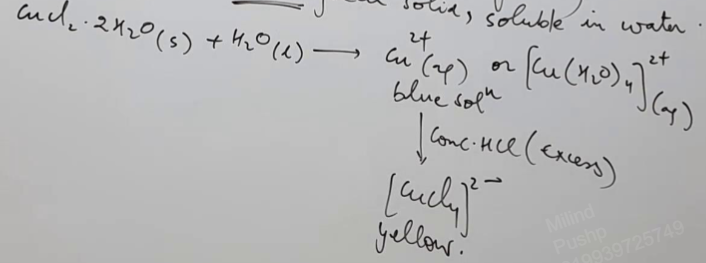 solid, soluble in water.
CuCl₂·2H₂O(s) + H₂O(l) ⟶ Cu²⁺(aq) or [Cu(H₂O)₄]²⁺(aq)
blue solⁿ
↓ Conc. HCl (Excess)
[CuCl₄]²⁻
yellow.
Milind
Pushp
9939725749